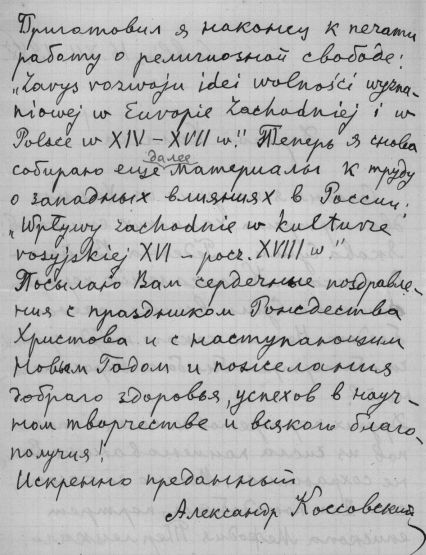 Приготовил я наконец к печати
работу о религиозной свободе:
„Zarys rozwoju idei wolności wyzna-
niowej w Europie Zachodniej i w
Polsce w XIV – XVII w." Теперь я снова
собираю еще далее материалы к труду
о западных влияниях в России:
„Wpływy zachodnie w kulturze
rosyjskiej XVI – pocz. XVIII w"
Посылаю Вам сердечные поздравле-
ния с праздником Рождества
Христова и с наступающим
Новым Годом и пожелания
доброго здоровья, успехов в науч-
ном творчестве и всякого благо-
получия!
Искренно преданный
Александр Коссовский